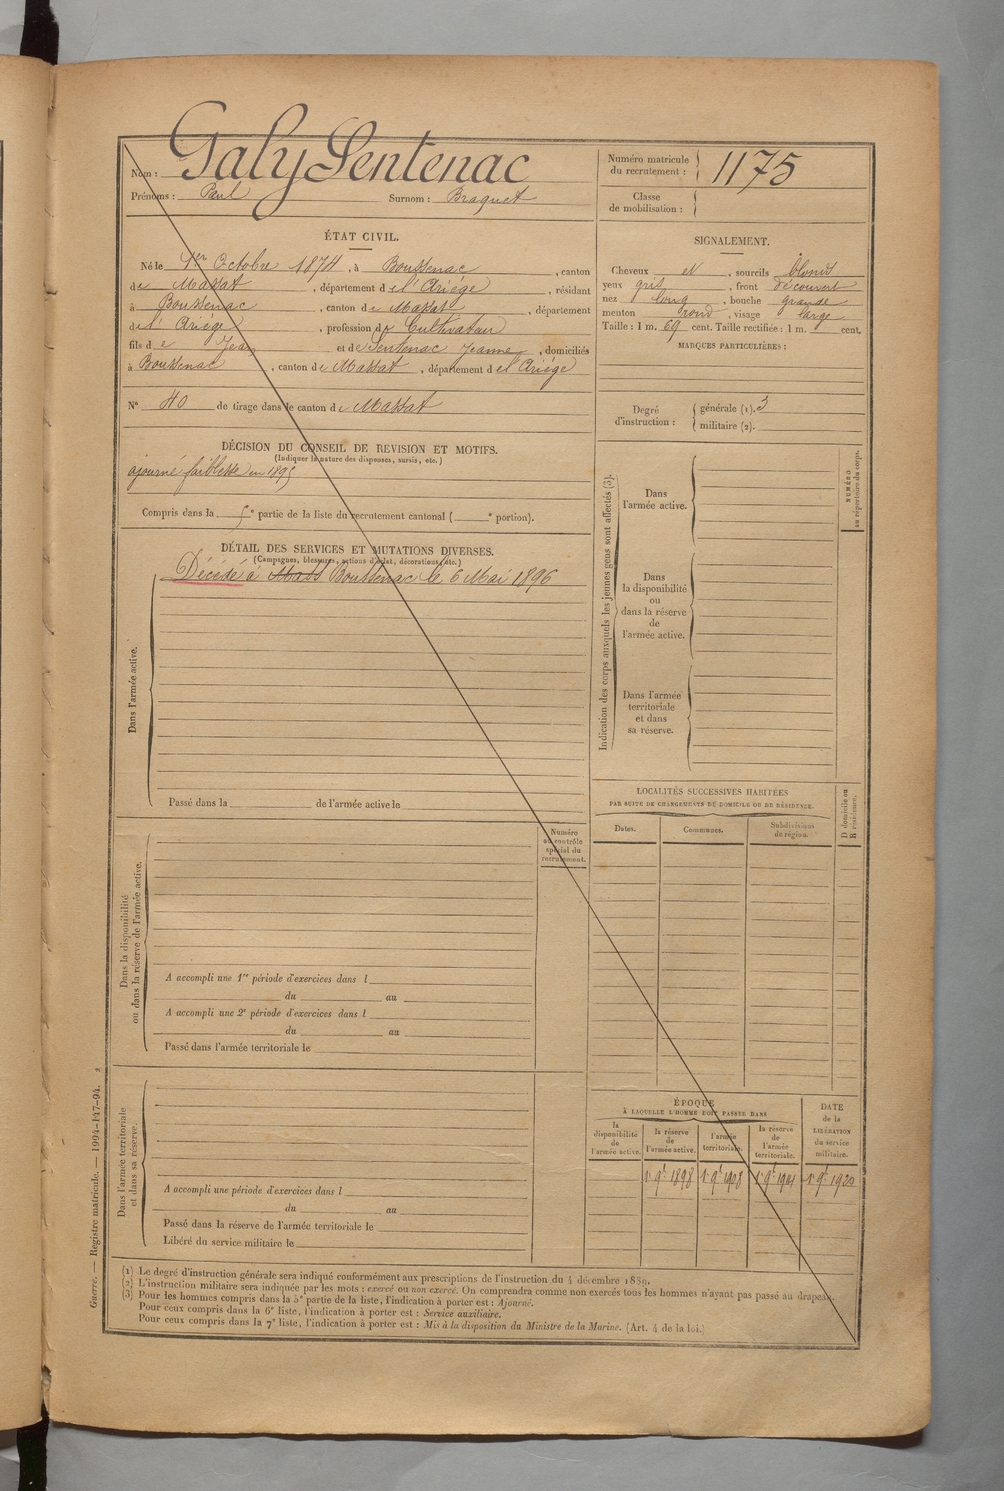 Nom : Galy Sentenac
Prénoms : Paul Surnom : Braquet
Numéro matricule du recrutement : 1175
Classe de mobilisation :
ÉTAT CIVIL.
Né le 1er Octobre 1874, à Boussenac, canton
de Massat, département de l'Ariége, résidant
à Boussenac, canton de Massat, département
de l'Ariége, profession de Cultivateur
fils de Jean et de Sentenac Jeanne, domiciliés
à Boussenac, canton de Massat, département de l'Ariége
N° 40 de tirage dans le canton de Massat
SIGNALEMENT.
Cheveux et, sourcils blonds
yeux gris, front découvert
nez long, bouche grande
menton rond, visage large
Taille : 1 m. 69 cent. Taille rectifiée : 1 m. cent.
MARQUES PARTICULIÈRES :
Degré d'instruction : générale (1). 3
militaire (2).
DÉCISION DU CONSEIL DE REVISION ET MOTIFS.
(Indiquer la nature des dispenses, sursis, etc.)
ajourné faiblesse en 1895
Compris dans la 5e partie de la liste du recrutement cantonal ( e portion).
DÉTAIL DES SERVICES ET MUTATIONS DIVERSES.
(Campagnes, blessures, actions d'éclat, décorations, etc.)
Décédé à Mass Boussenac le 6 Mai 1896
Dans l'armée active.
Passé dans la de l'armée active le
Indication des corps auxquels les jeunes gens sont affectés (3).
NUMÉRO au répertoire du corps.
Dans l'armée active.
Dans la disponibilité ou dans la réserve de l'armée active.
Dans l'armée territoriale et dans sa réserve.
LOCALITÉS SUCCESSIVES HABITÉES
PAR SUITE DE CHANGEMENTS DE DOMICILE OU DE RÉSIDENCE.
D domicile ou R résidence.
Dates. Communes. Subdivisions de région.
Numéro au contrôle spécial du recrutement.
Dans la disponibilité ou dans la réserve de l'armée active.
A accompli une 1re période d'exercices dans l
du au
A accompli une 2e période d'exercices dans l
du au
Passé dans l'armée territoriale le
Dans l'armée territoriale et dans sa réserve.
A accompli une période d'exercices dans l
du au
Passé dans la réserve de l'armée territoriale le
Libéré du service militaire le
ÉPOQUE
À LAQUELLE L'HOMME DOIT PASSER DANS
la disponibilité de l'armée active.
la réserve de l'armée active.
l'armée territoriale.
la réserve de l'armée territoriale.
DATE de la LIBÉRATION du service militaire.
1898 1908 1920
(1) Le degré d'instruction générale sera indiqué conformément aux prescriptions de l'instruction du 4 décembre 1889.
(2) L'instruction militaire sera indiquée par les mots : exercé ou non exercé. On comprendra comme non exercés tous les hommes n'ayant pas passé au drapeau.
(3) Pour les hommes compris dans la 5e partie de la liste, l'indication à porter est : Ajourné.
Pour ceux compris dans la 6e liste, l'indication à porter est : Service auxiliaire.
Pour ceux compris dans la 7e liste, l'indication à porter est : Mis à la disposition du Ministre de la Marine. (Art. 4 de la loi.)
Guerre. — Registre matricule. — 1994-147-94. 2